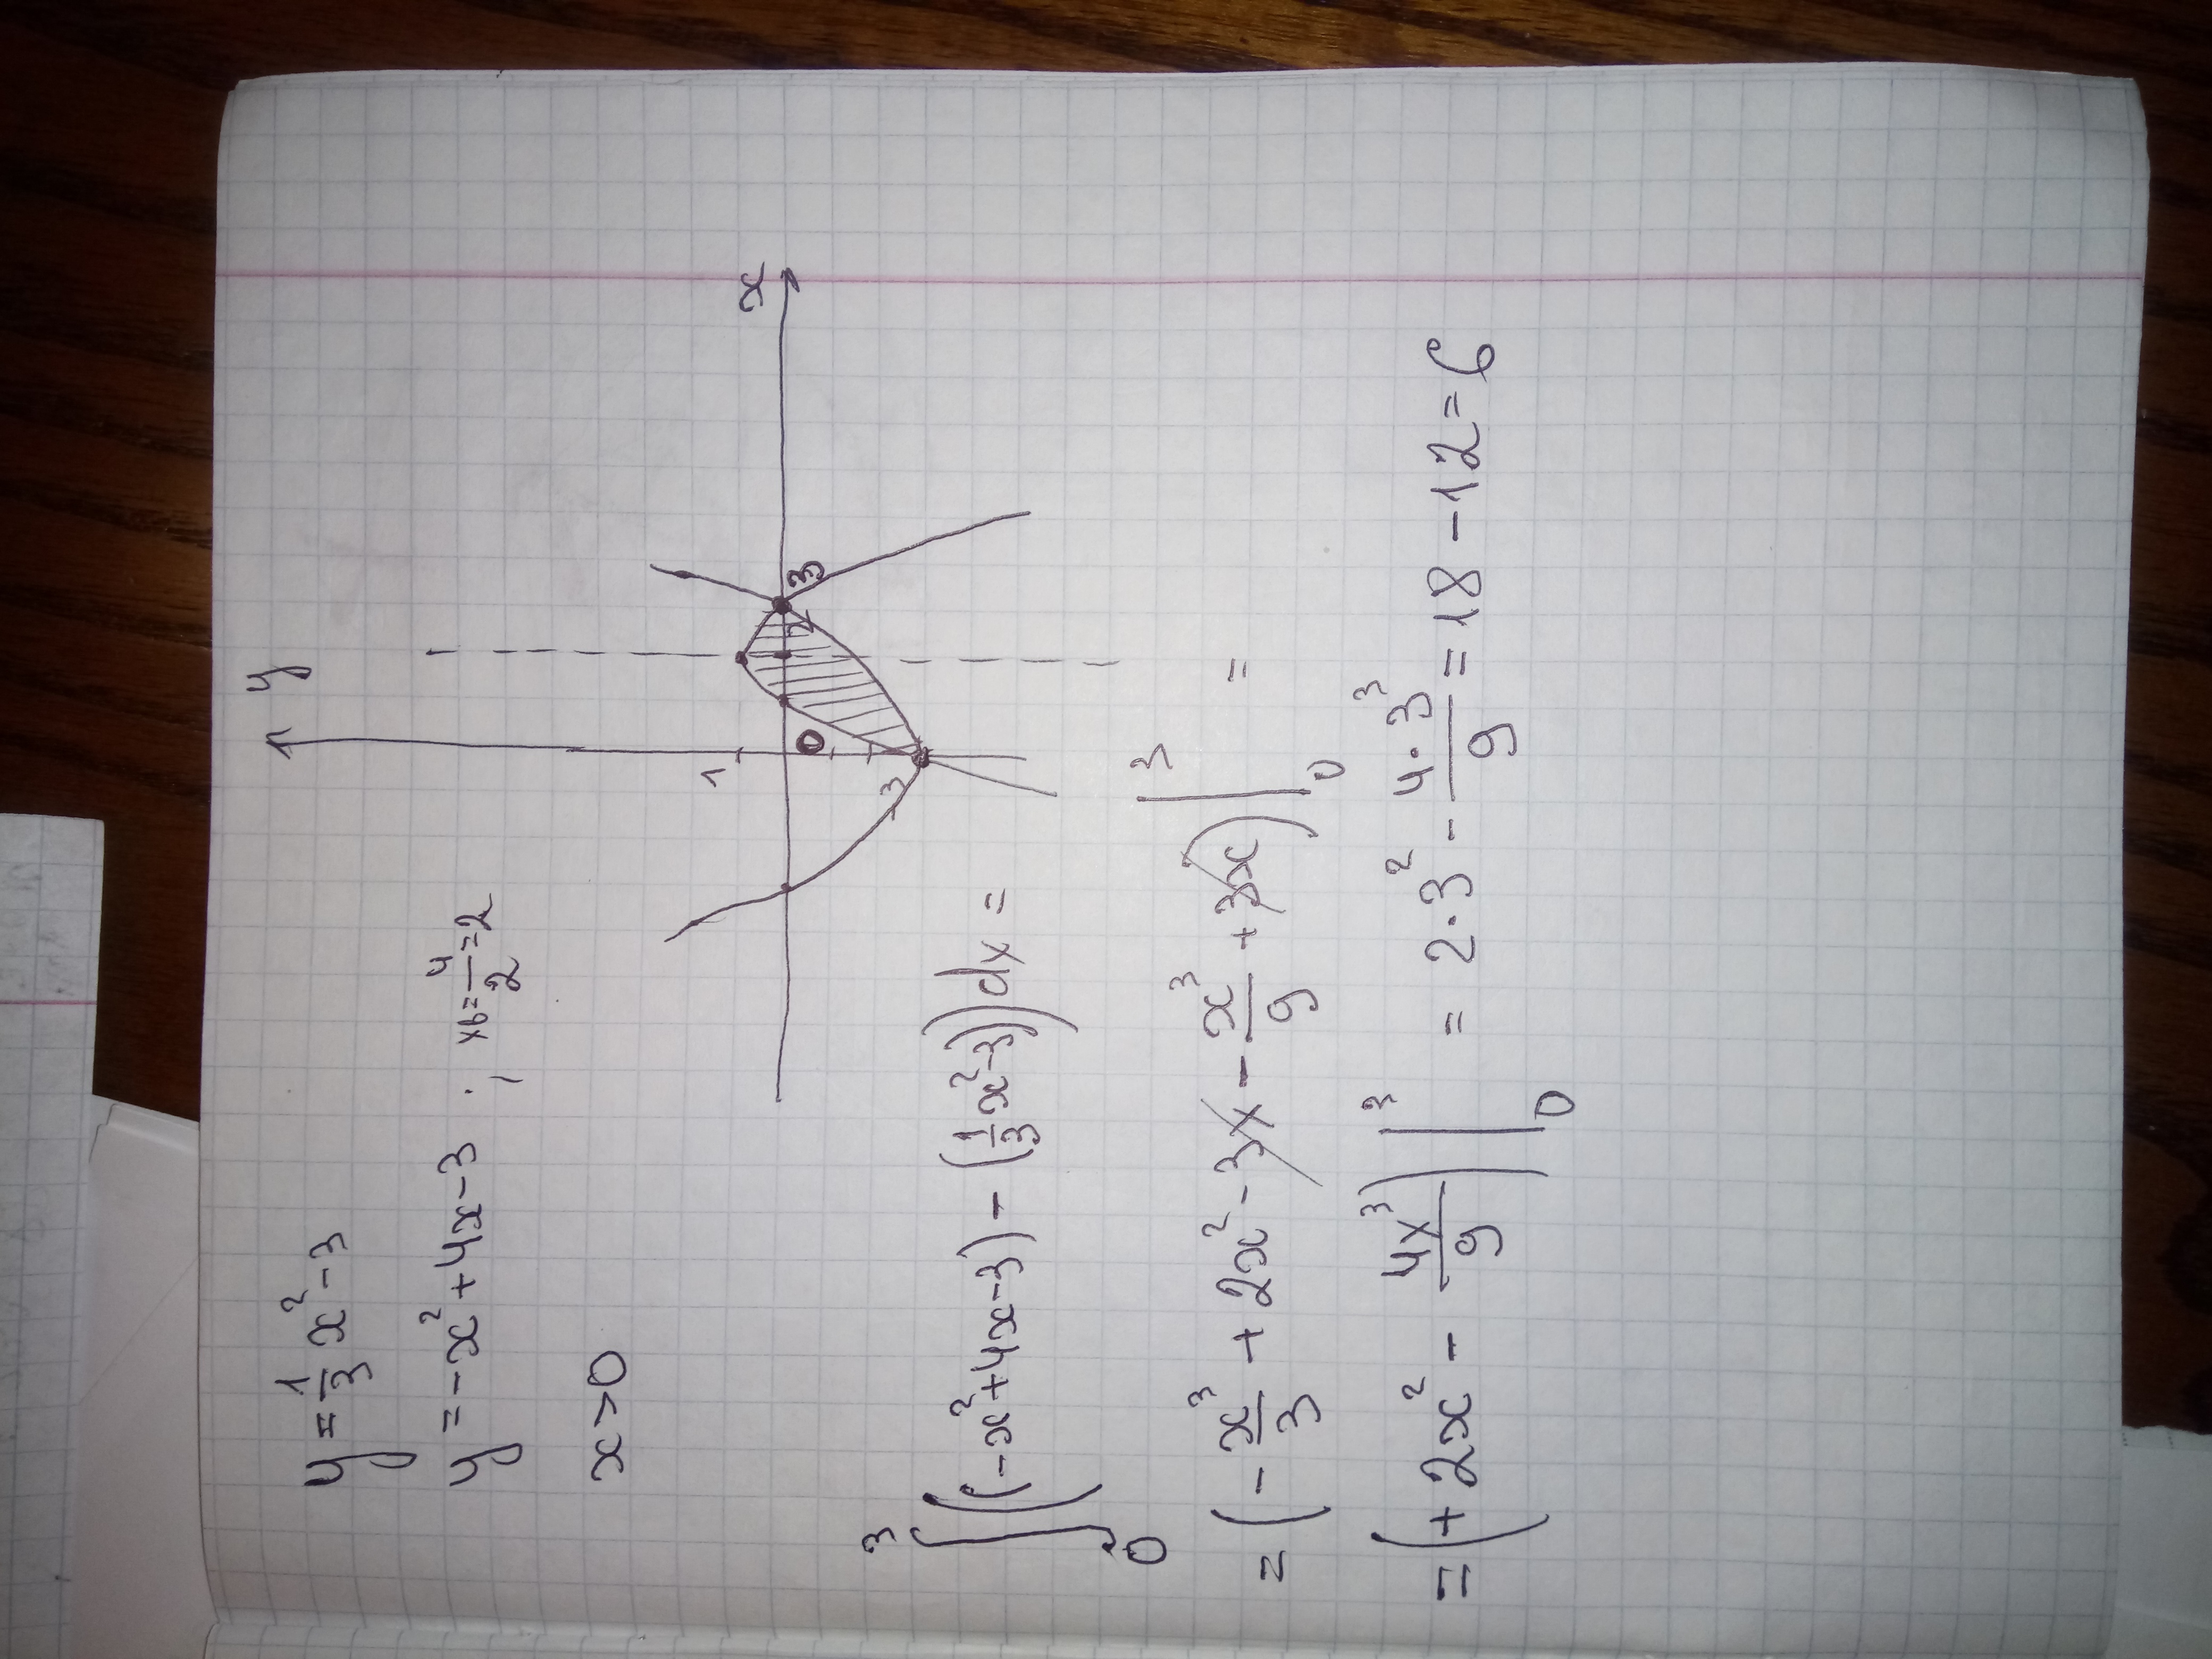 y = 1/3 x² - 3
y = -x² + 4x - 3 ; xв = 4/2 = 2
x > 0
y
1
0
2
3
x
3
∫₀³ ((-x² + 4x - 3) - (1/3 x² - 3)) dx =
= (- x³/3 + 2x² - 3x - x³/9 + 3x) |₀³ =
= (+ 2x² - 4x³/9) |₀³ = 2·3² - 4·3³/9 = 18 - 12 = 6